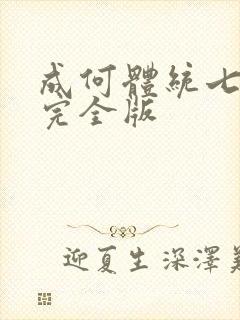 成何體統七
完全版
迎夏生 深澤美